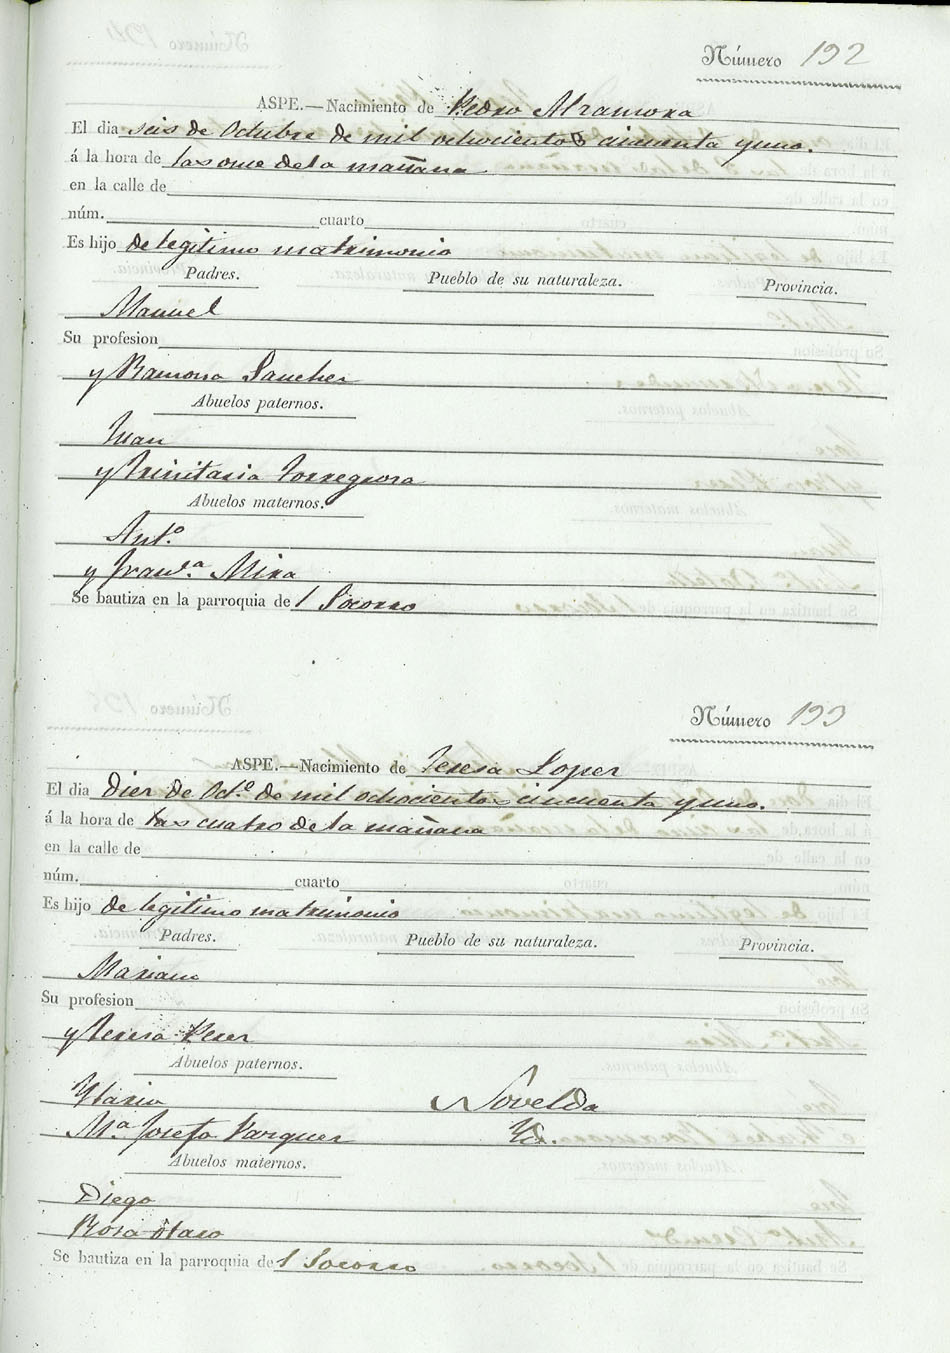 Número 192
ASPE.—Nacimiento de Pedro Alramora
El dia seis de Octubre de mil ochocientos cincuenta y uno.
á la hora de las once de la mañana
en la calle de
núm. cuarto
Es hijo de legitimo matrimonio
Padres. Pueblo de su naturaleza. Provincia.
Manuel
Su profesion
y Ramona Sanchez
Abuelos paternos.
Juan
y Trinitaria Torregrosa
Abuelos maternos.
Antº
y Franca Mira
Se bautiza en la parroquia del Socorro
Número 193
ASPE.—Nacimiento de Teresa Lopez
El dia Diez de Oct.e de mil ochocientos cincuenta y uno.
á la hora de las cuatro de la mañana
en la calle de
núm. cuarto
Es hijo de legitimo matrimonio
Padres. Pueblo de su naturaleza. Provincia.
Mariano
Su profesion
y Teresa Perez
Abuelos paternos.
Ylario Novelda
Mª Josefa Vazquez Yd.
Abuelos maternos.
Diego
Rosa
Se bautiza en la parroquia del Socorro